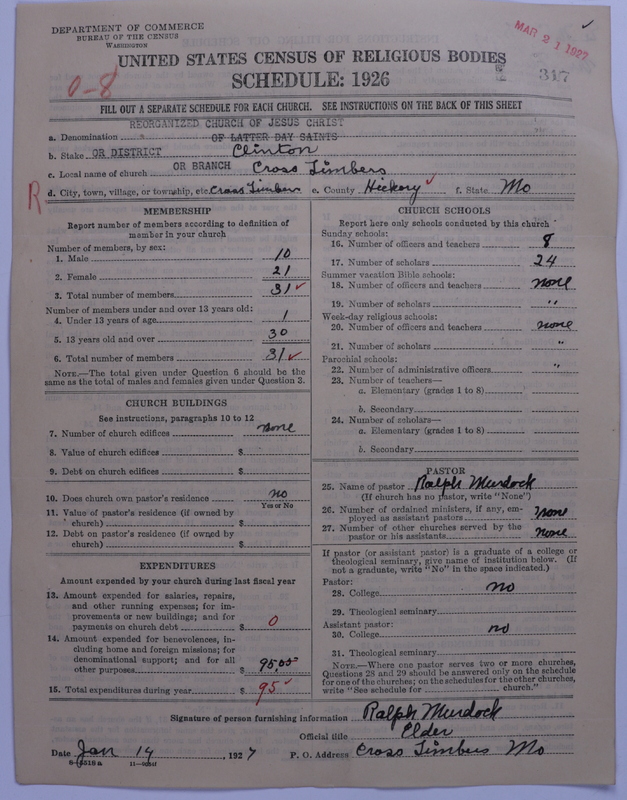 DEPARTMENT OF COMMERCE
BUREAU OF THE CENSUS
WASHINGTON
MAR 21 1927
UNITED STATES CENSUS OF RELIGIOUS BODIES
SCHEDULE: 1926
0-8
317
FILL OUT A SEPARATE SCHEDULE FOR EACH CHURCH. SEE INSTRUCTIONS ON THE BACK OF THIS SHEET
REORGANIZED CHURCH OF JESUS CHRIST
a. Denomination OF LATTER DAY SAINTS
b. Stake OR DISTRICT Clinton
c. Local name of church OR BRANCH Cross Timbers
R
d. City, town, village, or township, etc. Cross Timbers e. County Hickory f. State Mo
MEMBERSHIP
Report number of members according to definition of
member in your church
Number of members, by sex:
1. Male 10
2. Female 21
3. Total number of members 31
Number of members under and over 13 years old:
4. Under 13 years of age 1
5. 13 years old and over 30
6. Total number of members 31
NOTE.—The total given under Question 6 should be the
same as the total of males and females given under Question 3.
CHURCH BUILDINGS
See instructions, paragraphs 10 to 12
7. Number of church edifices none
8. Value of church edifices $
9. Debt on church edifices $
10. Does church own pastor's residence no
Yes or No
11. Value of pastor's residence (if owned by
church) $
12. Debt on pastor's residence (if owned by
church) $
EXPENDITURES
Amount expended by your church during last fiscal year
13. Amount expended for salaries, repairs,
and other running expenses; for im-
provements or new buildings; and for
payments on church debt $ 0
14. Amount expended for benevolences, in-
cluding home and foreign missions; for
denominational support; and for all
other purposes $ 95.00
15. Total expenditures during year $ 95
CHURCH SCHOOLS
Report here only schools conducted by this church
Sunday schools:
16. Number of officers and teachers 8
17. Number of scholars 24
Summer vacation Bible schools:
18. Number of officers and teachers none
19. Number of scholars "
Week-day religious schools:
20. Number of officers and teachers none
21. Number of scholars "
Parochial schools:
22. Number of administrative officers "
23. Number of teachers—
a. Elementary (grades 1 to 8)
b. Secondary
24. Number of scholars—
a. Elementary (grades 1 to 8)
b. Secondary
PASTOR
25. Name of pastor Ralph Murdock
(If church has no pastor, write "None")
26. Number of ordained ministers, if any, em-
ployed as assistant pastors none
27. Number of other churches served by the
pastor or his assistants none
If pastor (or assistant pastor) is a graduate of a college or
theological seminary, give name of institution below. (If
not a graduate, write "No" in the space indicated.)
Pastor:
28. College no
29. Theological seminary
Assistant pastor:
30. College no
31. Theological seminary
NOTE.—Where one pastor serves two or more churches,
Questions 28 and 29 should be answered only on the schedule
for one of the churches; on the schedules for the other churches,
write "See schedule for church."
Signature of person furnishing information Ralph Murdock
Official title Elder
Date Jan 14, 1927 P. O. Address Cross Timbers Mo